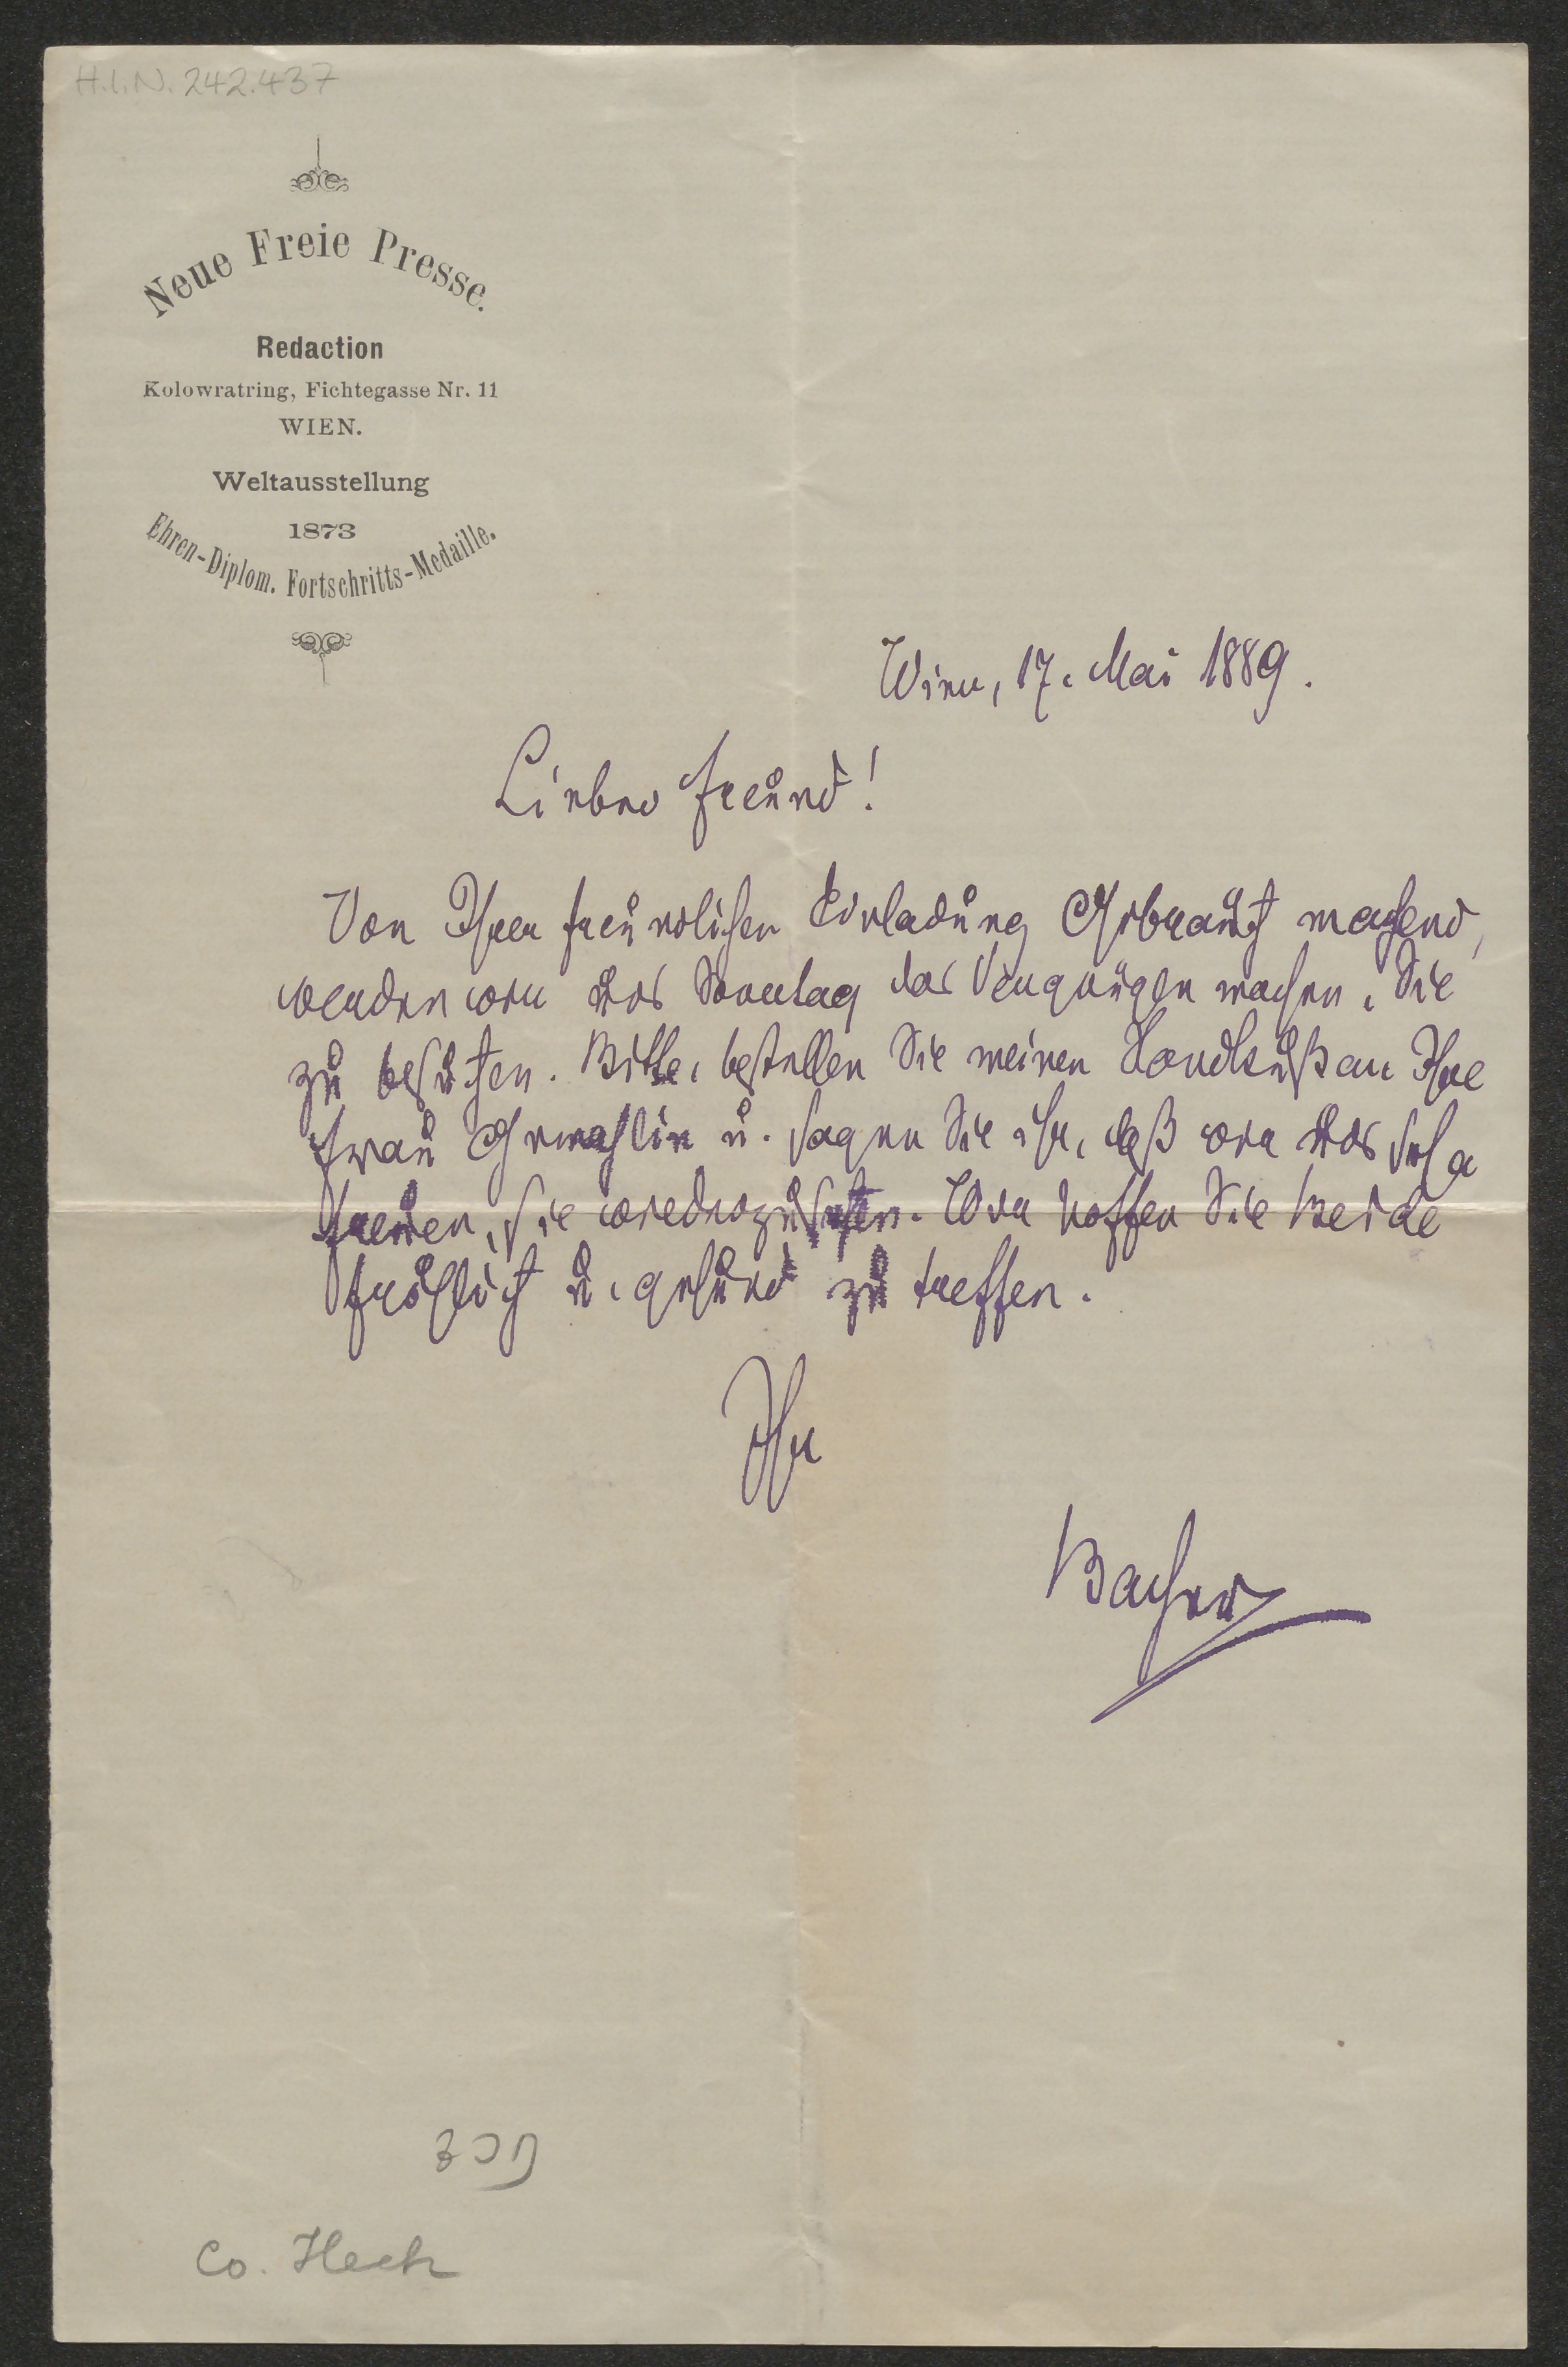 H.I.N. 242.437
Neue Freie Presse.
Redaction
Kolowratring, Fichtegasse Nr. 11
WIEN.
Weltausstellung
1873
Ehren-Diplom. Fortschritts-Medaille.
Wien, 17. Mai 1889.
Lieber Freund!
Von Ihrer freundlichen Einladung Gebrauch machend,
werden wir uns Sonntag das Vergnügen machen, Sie
zu besuchen. Bitte, bestellen Sie meinen Handkuß an Ihre
Frau Gemahlin u. sagen Sie ihr, daß wir uns sehr
freuen, sie wiederzusehen. Wir hoffen Sie Beide
fröhlich u. gesund zu treffen.
Ihr
Bacher
Co. Heck